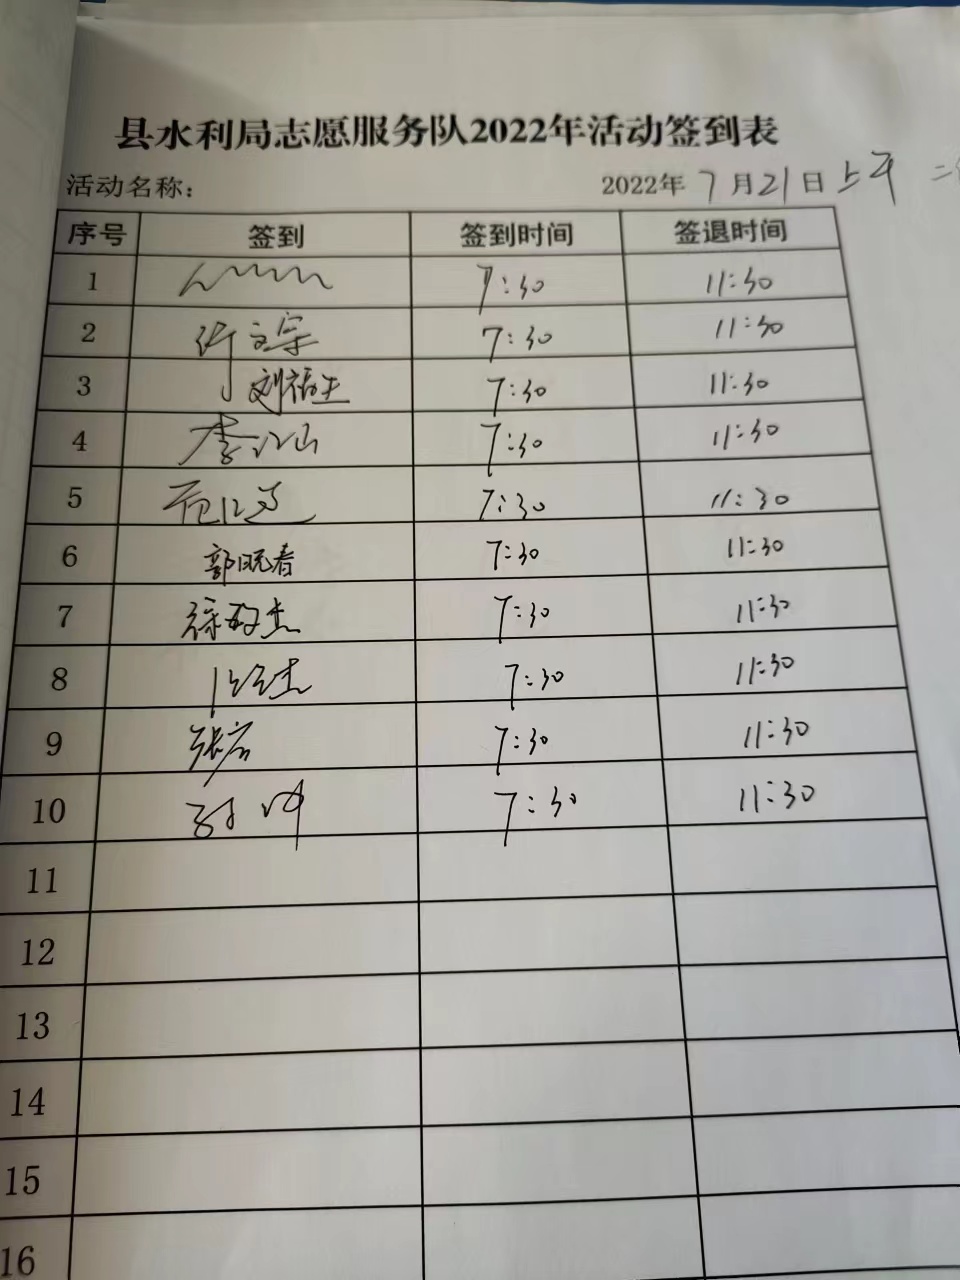 县水利局志愿服务队2022年活动签到表
活动名称： 2022年 7月21日 上午
序号 签到 签到时间 签退时间
1 7:30 11:30
2 许文宗 7:30 11:30
3 刘福生 7:30 11:30
4 李 7:30 11:30
5 7:30 11:30
6 郭晓春 7:30 11:30
7 徐政杰 7:30 11:30
8 7:30 11:30
9 张宏 7:30 11:30
10 孙冲 7:30 11:30
11
12
13
14
15
16